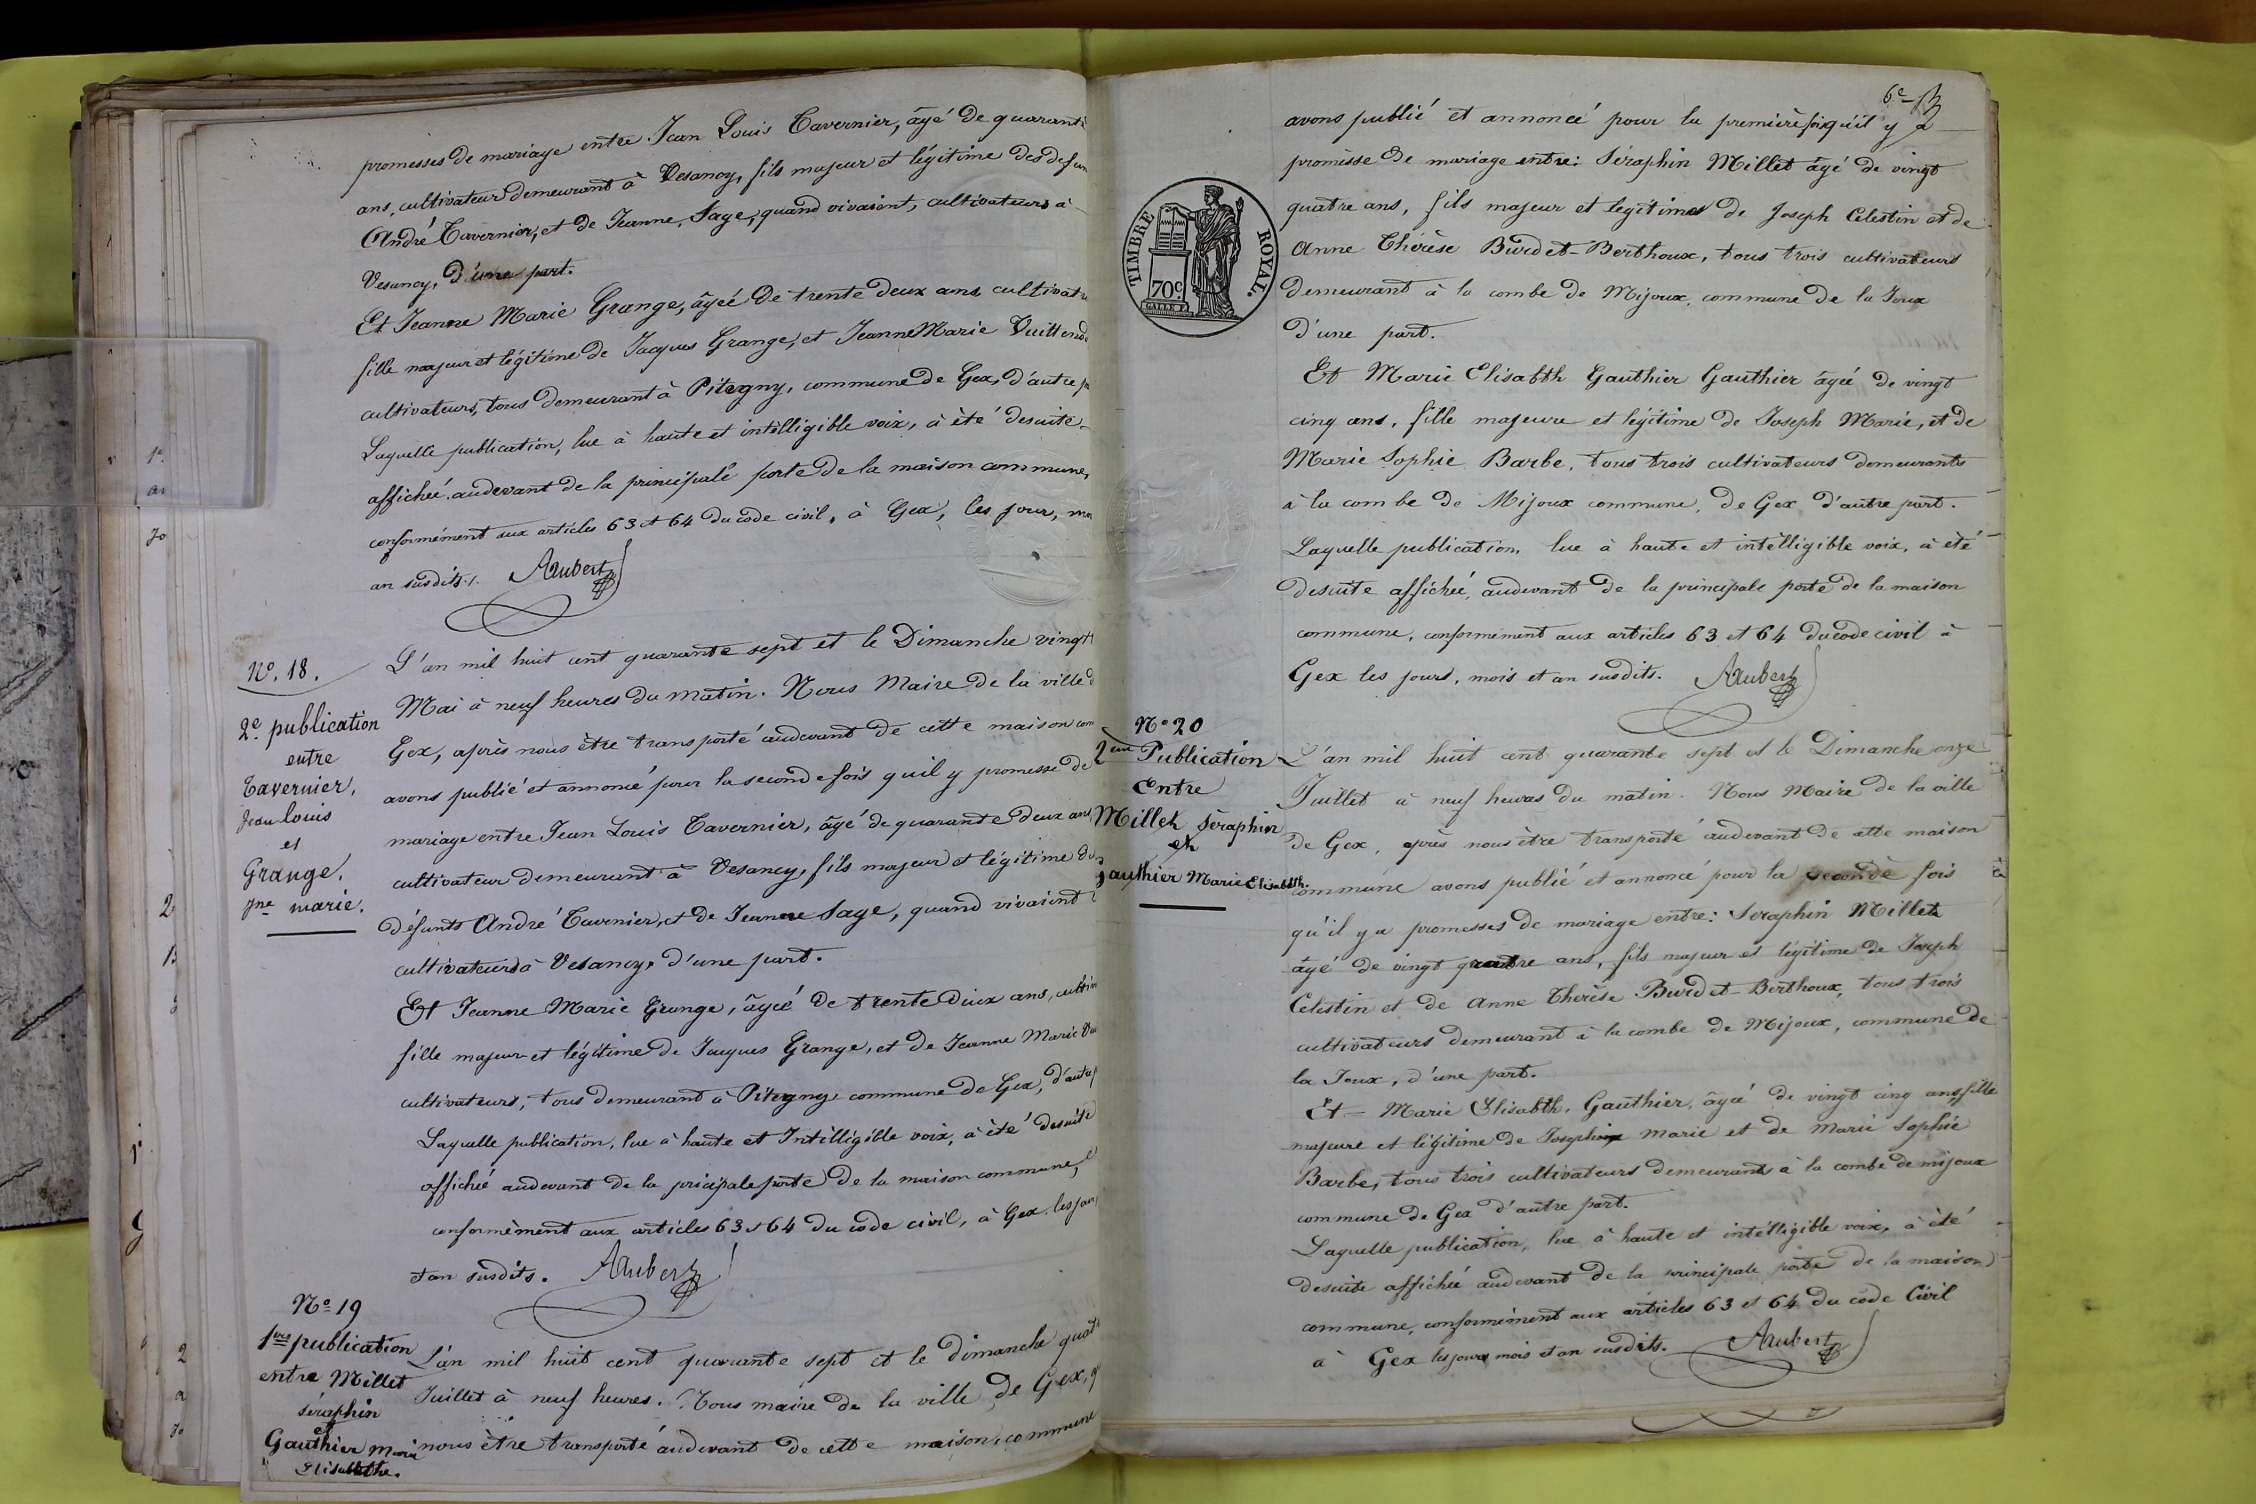 promesses de mariage entre Jean Louis Tavernier, âgé de quarante
ans, cultivateur demeurant à Vesancy, fils majeur et légitime des defun
André Tavernier, et de Jeanne Sage, quand vivaient, cultivateurs à
Vesancy, d'une part.
Et Jeanne Marie Grange, âgéé de trente deux ans cultivatr
fille majeur et légitime de Jacques Grange, et Jeanne Marie Vuittend
cultivateurs, tous demeurant à Pitegny, commune de Gex, d'autre p
Laquelle publication, lue à haute et intélligible voix, à été desuite
affichéé audevant de la principale porte de la maison commune,
conformément aux articles 63 et 64 du code civil, à Gex, les jour, mo
an susdits. Aubert
N°. 18.
2e publication
entre
Tavernier,
Jean louis
et
Grange,
Jne marie.
L'an mil huit cent quarante sept et le Dimanche vingt
Mai à neuf heures du matin. Nous Maire de la ville d
Gex, après nous être transporté audevant de cette maison com
avons publié et annoncé pour la seconde fois qu'il y promesse de
mariage entre Jean Louis Tavernier, âgé de quarante deux ans
cultivateur demeurant à Vesancy, fils majeur et légitime de
défunts André Tavernier, et de Jeanne Sage, quand vivaient
cultivateurs à Vesancy, d'une part.
Et Jeanne Marie Grange, âgéé de trente deux ans, cultiv
fille majeur et légitime de Jacques Grange, et de Jeanne Marie Vu
cultivateurs, tous demeurant à Pitegny, commune de Gex, d'autre p
Laquelle publication, lue à haute et Intélligible voix, à été desuite
affichéé audevant de la pricipale porte de la maison commune,
conformément aux articles 63 et 64 du code civil, à Gex les jour
et an susdits. Aubert
N° 19
1ere publication
entre Millet
séraphin
et
Gauthier marie
Elisabthe.
L'an mil huit cent quarante sept et le dimanche quatr
Juillet à neuf heures. Nous maire de la ville de Gex,
nous être transporté audevant de cette maison, commune
6e
avons publié et annoncé pour la première fois qu'il y a
promesse de mariage entre: Séraphin Millet âgé de vingt
quatre ans, fils majeur et legitime de Joseph Célestin et de
Anne Thérèse Burdet-Berthoux, tous trois cultivateurs
demeurant à la combe de Mijoux, commune de la Joux
d'une part.
TIMBRE ROYAL.
70c.
Et Marie Elisabth Gauthier Gauthier âgéé de vingt
cinq ans, fille majeure et légitime de Joseph Marie, et de
Marie Sophie Barbe, tous trois cultivateurs demeurants
à la combe de Mijoux commune, de Gex d'autre part.
Laquelle publication, lue à haute et intélligible voix, à été
desuite affichéé, audevant de la principale porte de la maison
commune, conformément aux articles 63 et 64 du code civil à
Gex les jours, mois et an susdits. Aubert
N° 20
2eme Publication
Entre
Millet Séraphin
et
Gauthier Marie Elisabth.
L'an mil huit cent quarante sept et le Dimanche onze
Juillet à neuf heures du matin. Nous Maire de la ville
de Gex, après nous être transporté audevant de cette maison
commune avons publié et annoncé pour la seconde fois
qu'il y a promesses de mariage entre: Séraphin Millet
âgé de vingt quatre ans, fils majeur et légitime de Joseph
Célestin et de Anne Thérèse Burdet-Berthoux, tous trois
cultivateurs demeurant à la combe de Mijoux, commune de
la Joux, d'une part.
Et Marie Elisabth. Gauthier, âgéé de vingt cinq ans, fille
majeure et légitime de Joseph Marie et de Marie Sophie
Barbe, tous trois cultivateurs demeurants à la combe de mijoux
commune de Gex d'autre part.
Laquelle publication, lue à haute et intélligible voix, à été
desuite affichéé audevant de la principale porte de la maison
commune, conformément aux articles 63 et 64 du code Civil
à Gex les jours mois et an susdits. Aubert